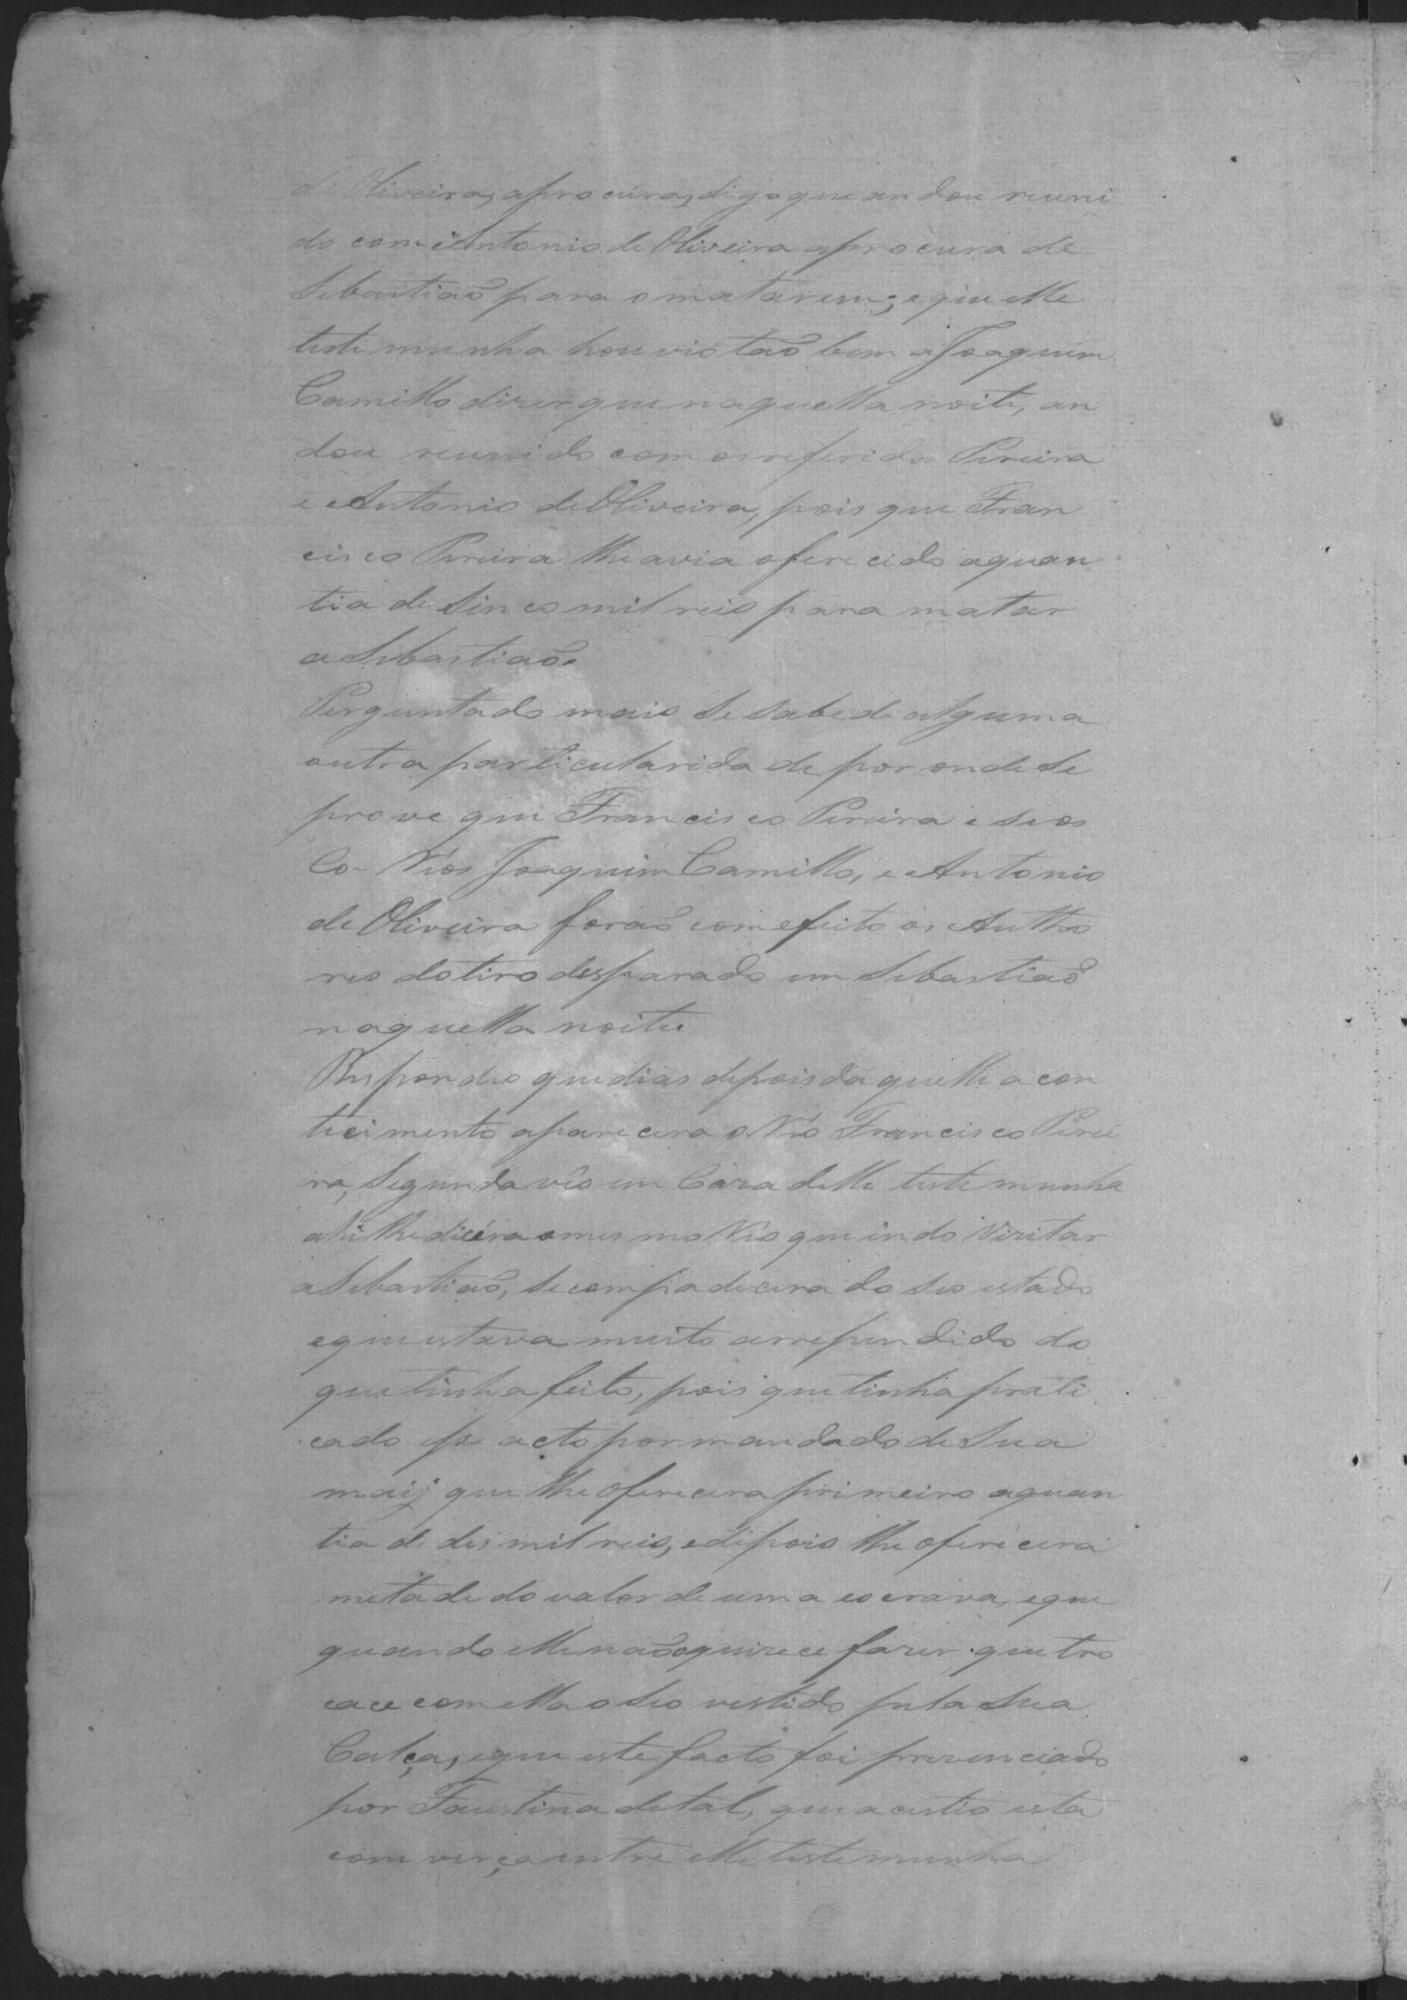 de Oliveira, aprocura, digo que andou reuni
do com Antonio de Oliveira aprocura de
Sebastiaõ para o matarem; e que elle
testemunha houvio taõ bem a Joaquim
Camillo dizer que naquella noite, an
dou reunido com os referidos Pereira
e Antonio de Oliveira, pois que Fran
cisco Pereira lhe avia oferecido aquan
tia de Sinco mil reis para matar
a Sebastiaõ.
Perguntado mais se sabe de alguma
outra particularidade por onde se
prove que Francisco Pereira e seos
Co-Reos Joaquim Camillo, e Antonio
de Oliveira foraõ com efeito os Autho
res do tiro desparado em Sebastiaõ
naquella noite
Respondeo que dias depois daquelle acon
tecimento aparecera o Reo Francisco Perei
ra, segunda vês em Caza delle testemunha
ahi lhe dicéra o mesmo Reo que indo Vizitar
a Sebastiaõ, se compadecera do seo estado
e que estava muito arrependido do
que tinha feito, pois que tinha prati
cado esse acto por mandado de Sua
maij que lhe oferecera primeiro aquan
tia de des mil reis, e depois lhe oferecera
metade do valor de uma escrava, e que
quando elle naõ quizece fazer que tro
cace com ella o seo vestido pela sua
Calça, e que este facto foi prezenciado
por Faustina de tal, que acestio esta
comverça entre elle testemunha